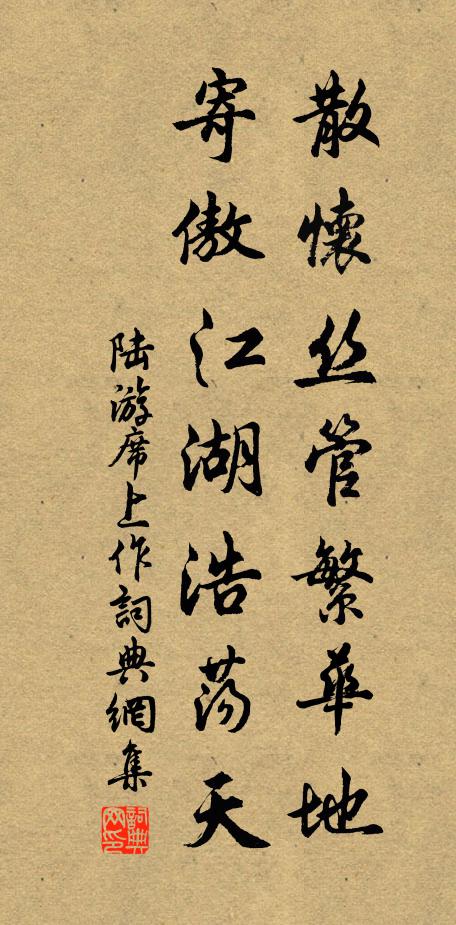 散懷丝管繁華地
寄傲江湖浩荡天
陆游席上作詞典網集
詞典
网印